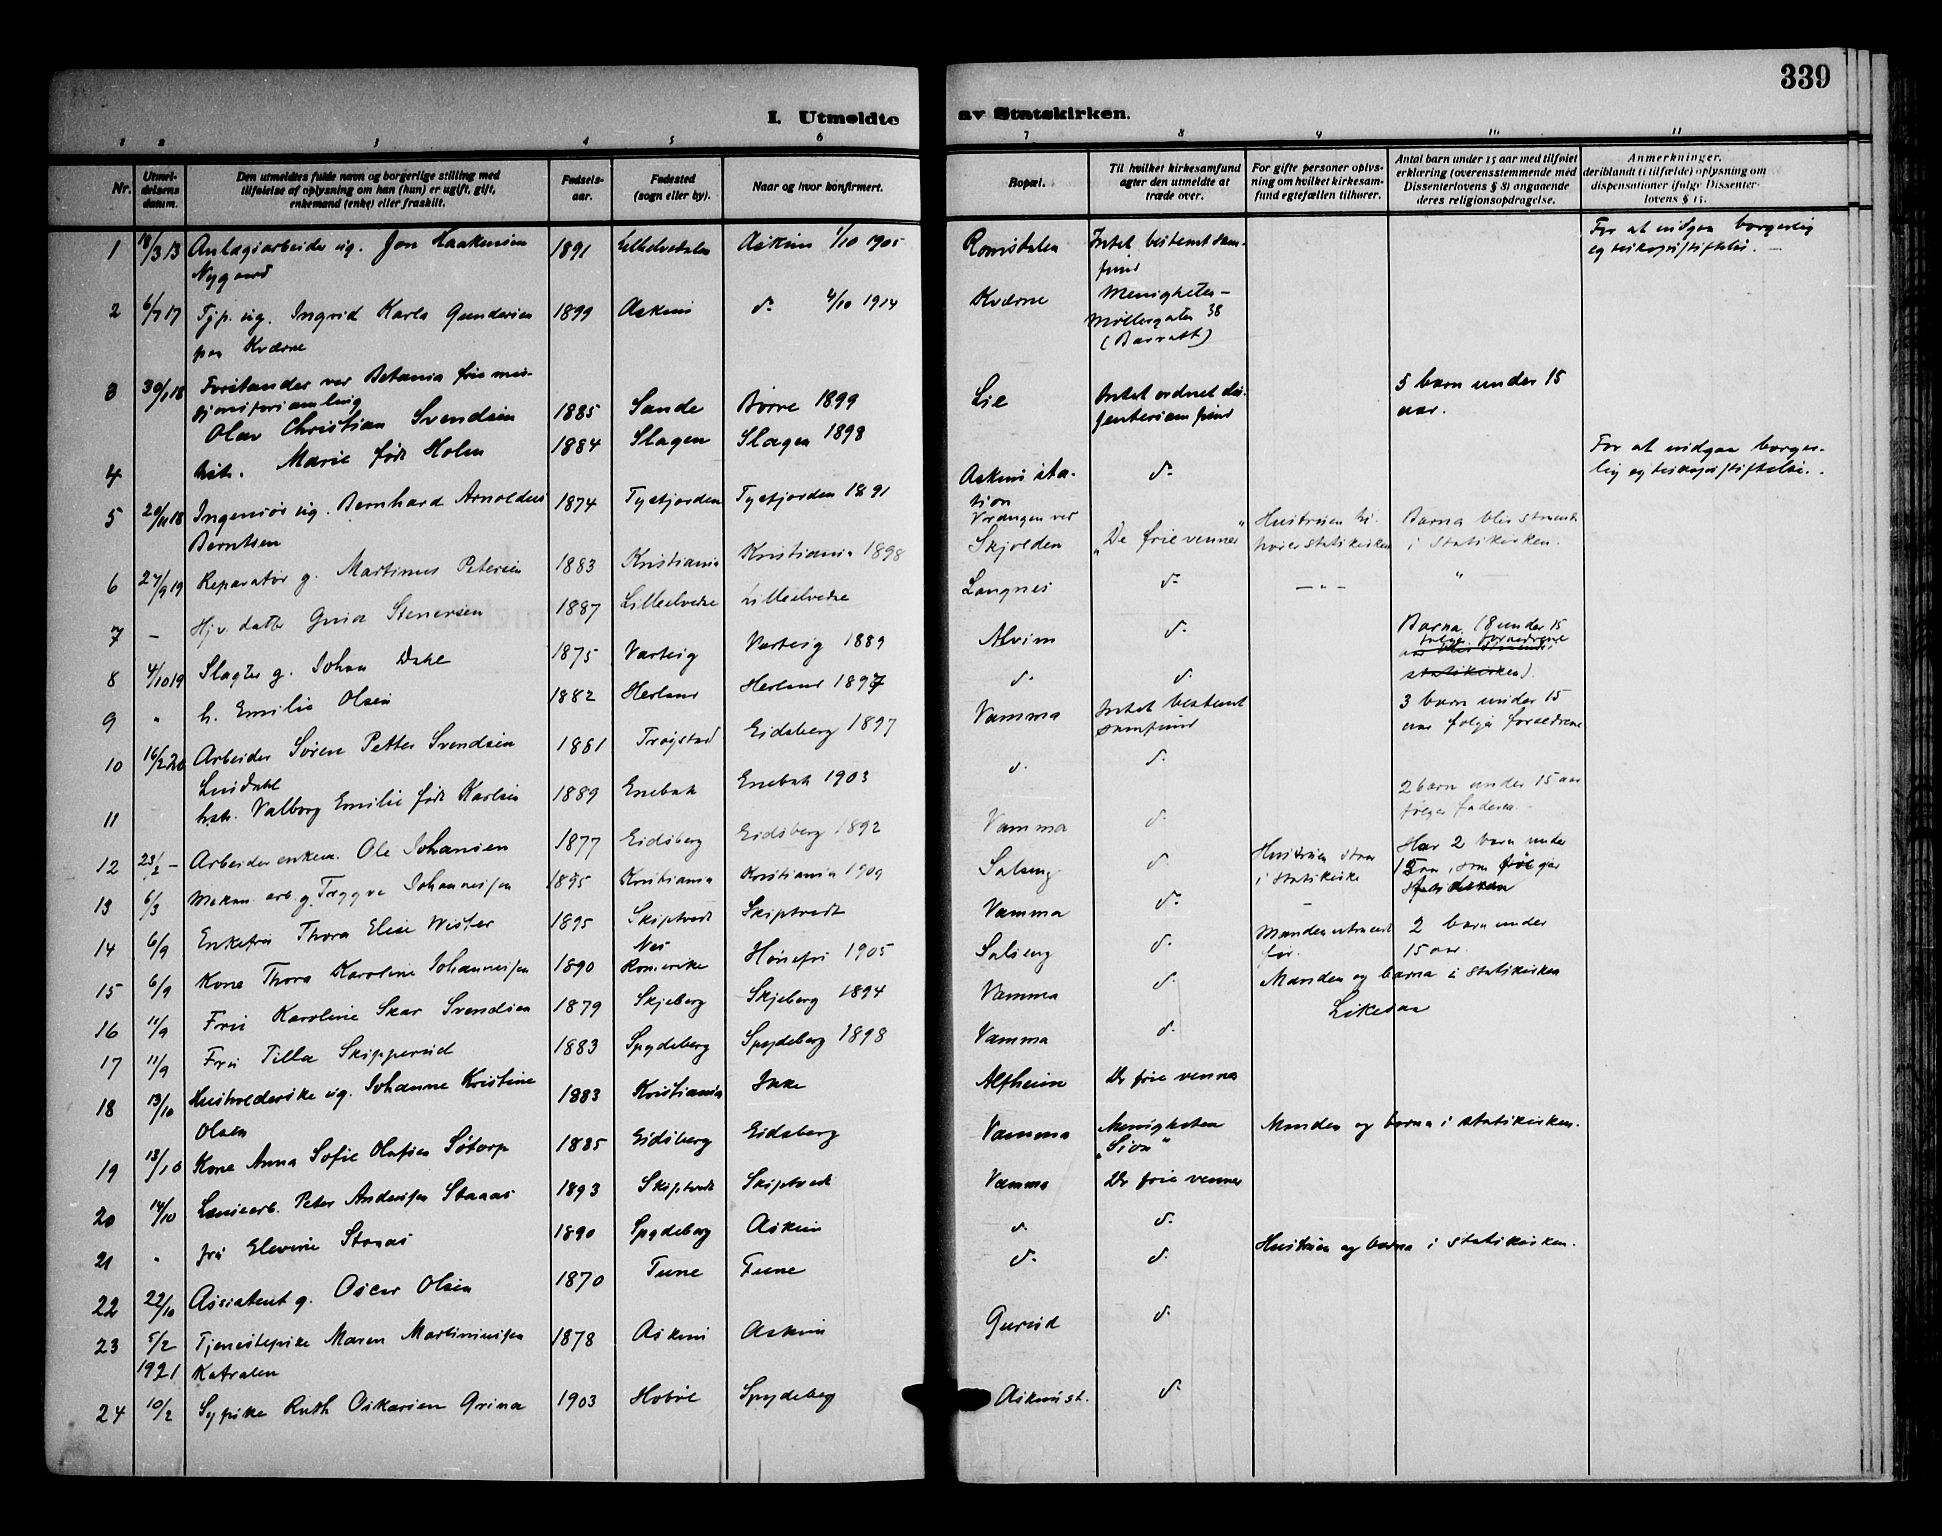 339
I. Utmeldte av Statskirken.
1 2 3 4 5 6 7 8 9 10 11
Nr.
Utmeldelsens datum.
Den utmeldtes fulde navn og borgerlige stilling med
tilføielse af oplysning om han (hun) er ugift, gift,
enkemand (enke) eller fraskilt.
Fødselsaar.
Fødested
(sogn eller by).
Naar og hvor konfirmert.
Bopæl.
Til hvilket kirkesamfund
agter den utmeldte at
træde over.
For gifte personer oplys-
ning om hvilket kirkesam-
fund egtefællen tilhører.
Antal barn under 15 aar med tilføiet
erklæring (overensstemmende med
Dissenterlovens § 8) angaaende
deres religionsopdragelse.
Anmerkninger,
deriblandt (i tilfælde) oplysning om
dispensationer ifølge Dissenter-
lovens § 15.
1 18/3 13 Anlægsarbeider ug. Jon Haakensen 1891 Askim 1/10 1905 Romsdalen Intet bestemt sam- For at indgaa borgerlig
Nygaard fund
2 6/7 17 Tjp. ug. Ingrid Karla Gundersen 1899 Askim d. 4/10 1914 Kværne Menigheten
paa Kværne Møllergaten 38
(Barratt)
3 30/1 18 Forstander ved Betania frie mis-
sjonsforsamling
Olav Christian Svendsen 1885 Sande Borre 1899 Lie Intet ordnet dis- 5 barn under 15
sentersamfund aar.
4 hstr. Marie født Holm 1884 Slagen Slagen 1898 Askim sta- d. For at indgaa borger-
tion
5 20/11 18 Ingeniør ug. Bernhard Arnoldus 1874 Tysfjorden Tysfjorden 1891
Berntsen
Skjolden "De frie venner" Hustruen ti- Barna blir staaende
hører statskirken i Statskirken.
6 27/9 19 Reparatør g. Martinus Petersen 1883 Kristiania Kristiania 1898 Langnes d. — " — "
7 — Hj.v. datter Stenersen 1887 Lilleelvedre Lilleelvedre Alvim d. Barna (8 under 15
følger forældrene
statskirken).
8 4/10 19 Slagter g. Johan Dahl 1875 Varteig Varteig 1889 d. d.
9 " h. Emilie Olsen 1882 Herland Herland 1897 Vamma Intet bestemt 3 barn under 15
samfund aar følger forældrene
10 16/2 20 Arbeider Søren Petter Svendsen 1881 Trøgstad Eidsberg 1897 d. d.
Lindahl
2 barn under 15 aar
følger faderen.
11 hstr. Valborg Emilie født Karlsen 1889 Enebak Enebak 1903 Vamma d.
12 23/2 — Arbeider enkem. Ole Johansen 1877 Eidsberg Eidsberg 1892 Salseng d. Hustruen staar Har 2 barn under
i statskirke 15 aar, som følger
13 6/3 Mekan. arb. g. Trygve Johannessen 1895 Kristiania Kristiania 1909 Vamma d. —
14 6/9 Enkefru Thora Elise Wister 1895 Skiptvedt Skiptvedt Salseng d. Manden utraadt 2 barn under
før. 15 aar.
15 6/9 Kone Thora Karoline Johannessen 1890 Nes Romerike Hønefos 1905 Vamma d. Manden og barna i statskirken
16 11/9 Fru Karoline Skar Svendsen 1879 Skjeberg Skjeberg 1894 Vamma d. Likesaa
17 11/9 Fru Tilla Skipperud 1883 Spydeberg Spydeberg 1898
18 13/10 Husholderske ug. Johanne Kristine 1883 Kristiania Ikke Alfheim De frie venner
Olsen
19 13/10 Kone Anna Sofie Olafsen Søtorp 1885 Eidsberg Eidsberg Vamma Menigheten Manden og barna i statskirken.
"Sion"
20 14/10 Peter Anderssen Staaas 1893 Skiptvedt Skiptvedt Vamma De frie venner
21 " fru Elevine Staaas 1890 Spydeberg Askim d. d.
22 22/10 Assistent g. Oscar Olsen 1870 Tune Tune d. d. Hustruen og barna i statskirken.
23 5/2 1921 Tjenestepike Maren Martiniussen 1878 Askim Askim Gurud d.
Katralen
24 10/2 Sypike Ruth Oskarsen Grina 1903 Hobøl Spydeberg Askim st. d.